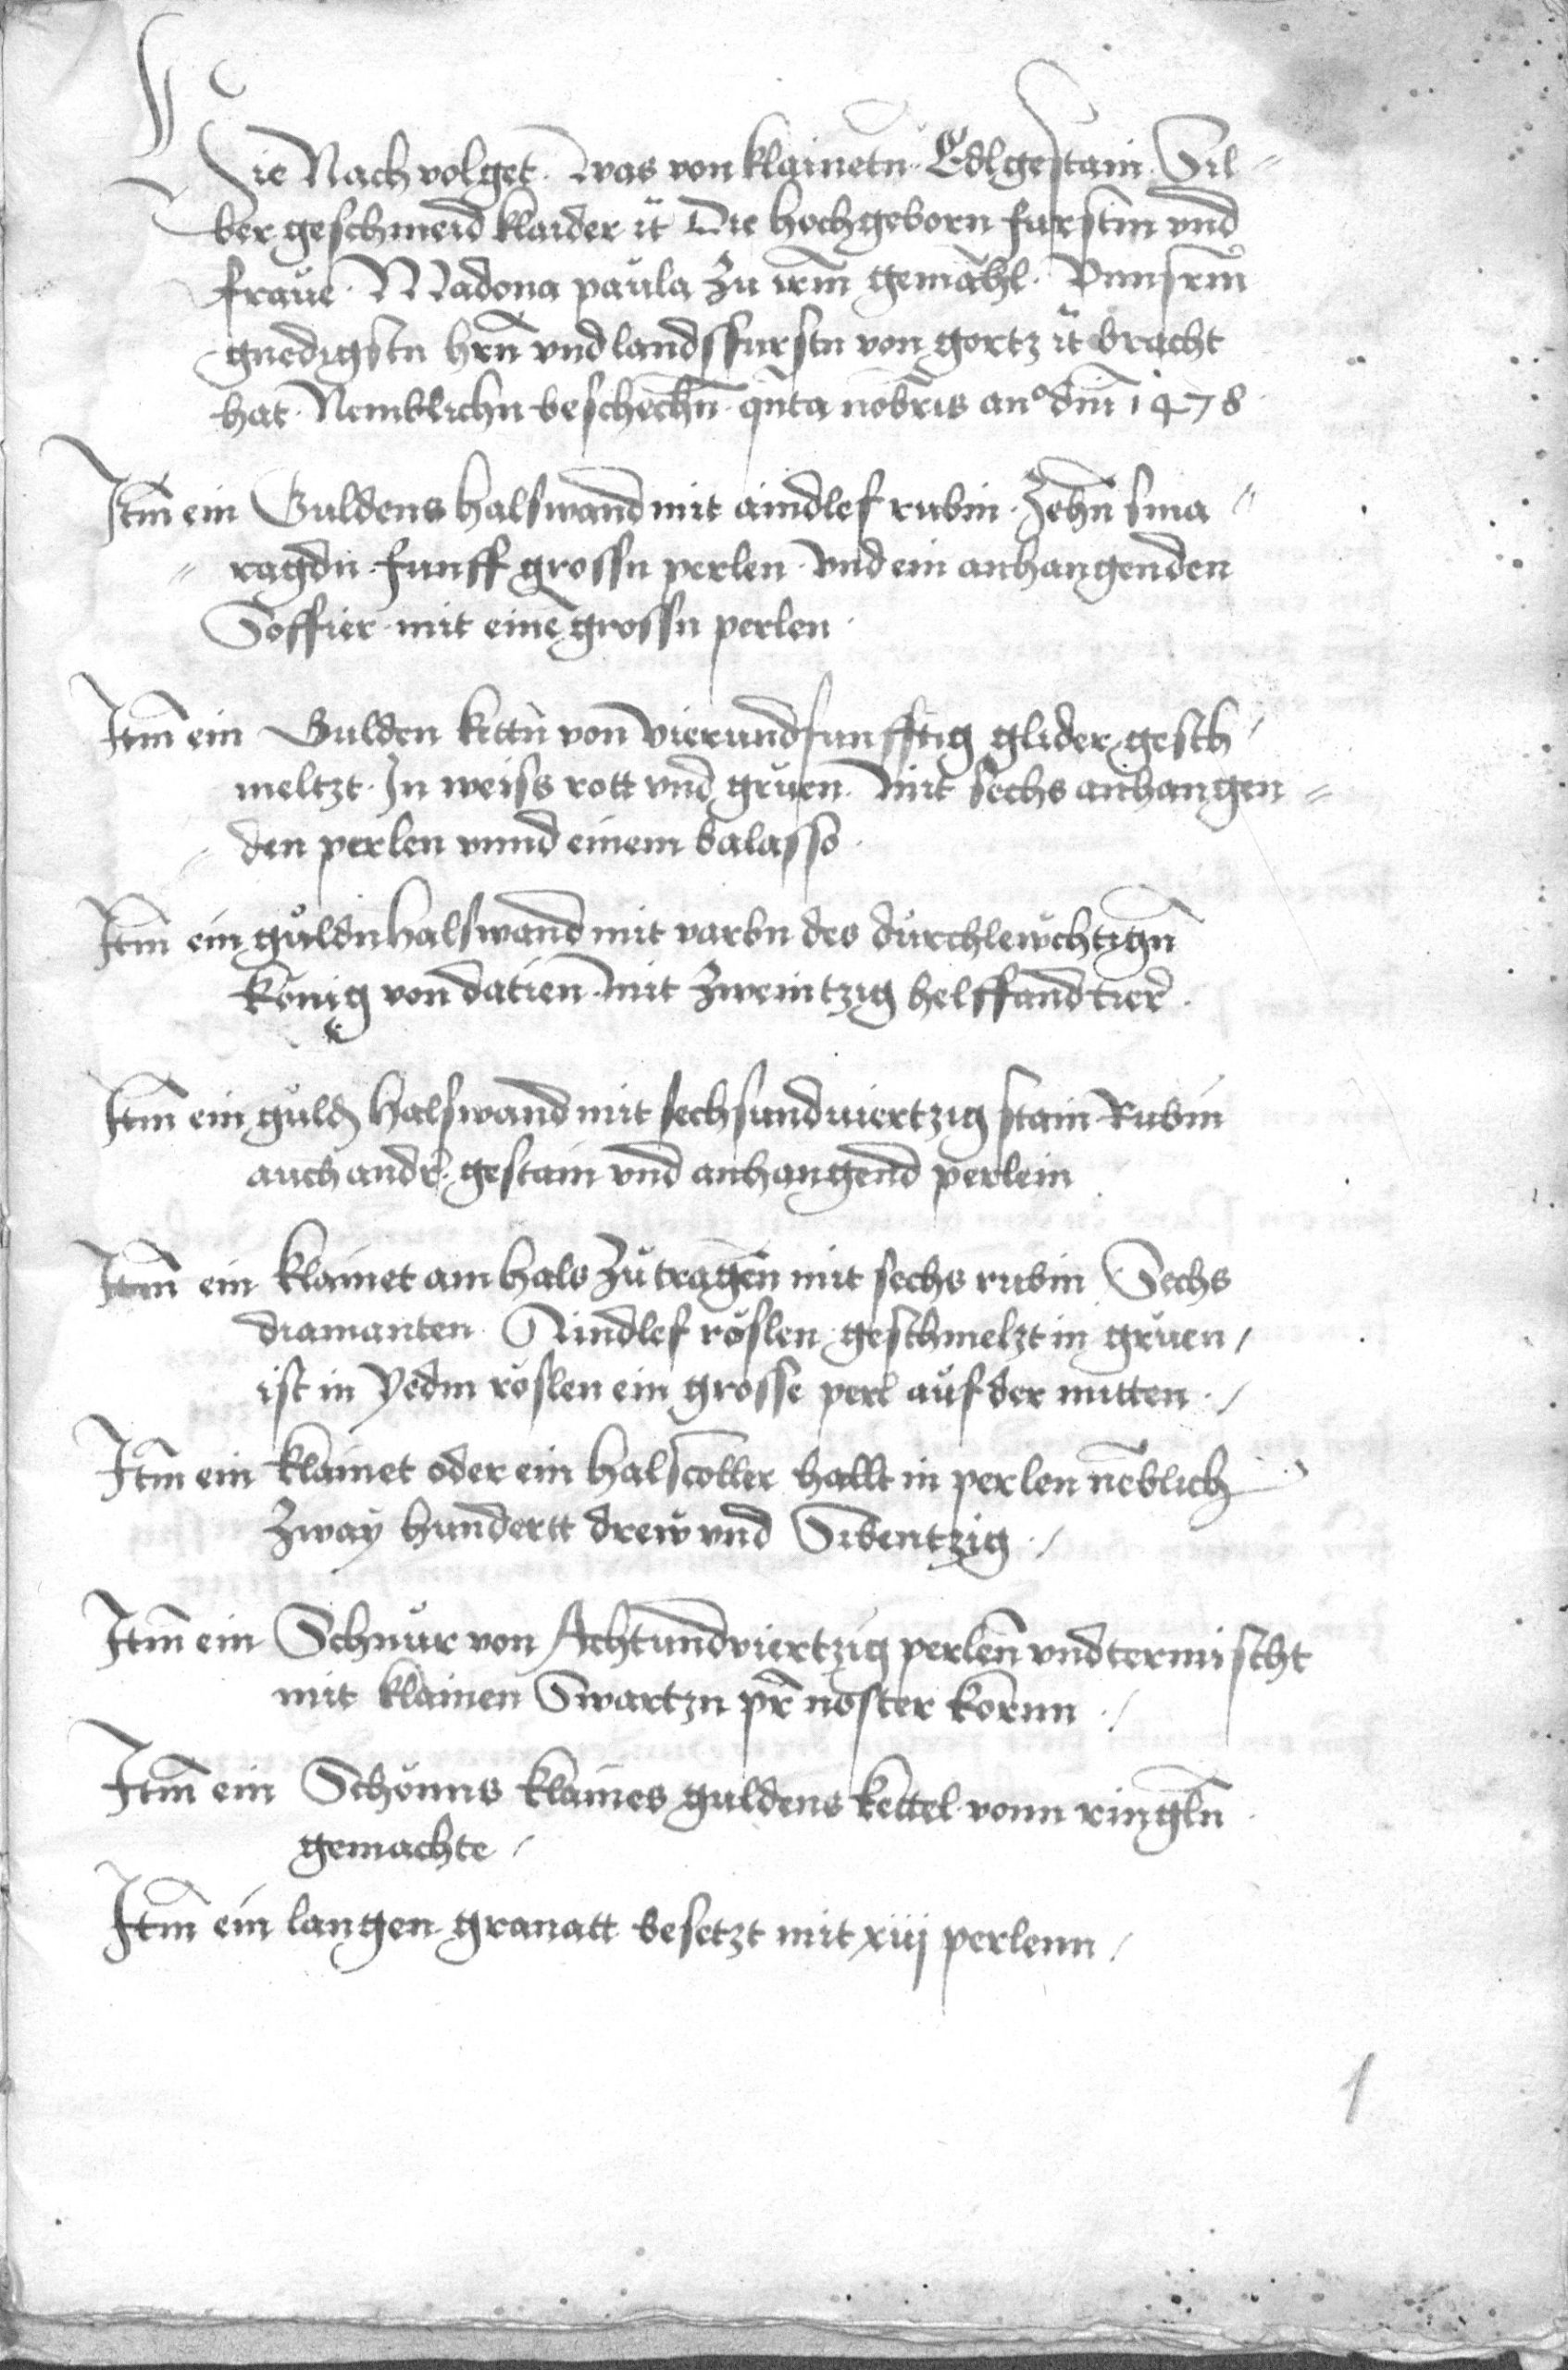 Hie Nach volget · was von klainetn · Edlgestain · Sil=
ber geschmeid klaider ꝛc Die hochgeborn furstin vnd
fraue · Madona paula zu irm̄ gemahl · Vnnsrm̄
gnedigstn hrn̄ vnd landsfurstn von gortz ꝛc bracht
hat · Nemblichn beschechn̄ · qūta nobrīs anº dm̄ 1478 ·
Itm̄ ein Guldens halsswand mit aindlef rubin · Zehn̄ sma=
=ragdn · funff grossn perlen · vnd ein anhangenden
Soffier mit einē grossn perlen ·
Itm̄ ein Gulden kettn̄ von vierundfunfftzig glider gesch
meltzt · In weiss rott vnd gruen · Mit sechs anhangen=
=den perlen vnnd einem balasso ·
Itm̄ ein guldn halsswand mit varbn des durchlewchtign̄
konig von datien · mit zweintzig helffand tier ·
Itm̄ ein guldn halsswand mit sechsundviertzig stain Rubin
auch andr̄ · gestain vnd anhangend perlein
Itm̄ ein klainet am hals zutragen̄ mit sechs rubin Sechs
diamanten · Aindlef röslen geschmelzt in gruen /
ist in yedm röslen ein grosse perl auf der mitten · /
Itm̄ ein klainet oder ein halscoller hallt in perlen nēblich
zway hundertt drew vnd Sibentzig · /
Itm̄ ein Schnur von Achtundviertzig perlen̄ vndtermischt
mit klainen Swartzn pr̄ noster kornn · /
Itm̄ ein Schönns klaines guldens kettel vonn ringln̄ ·
gemachte · /
Itm̄ ein langen granatt besetzt mit xiij perlenn · /
1